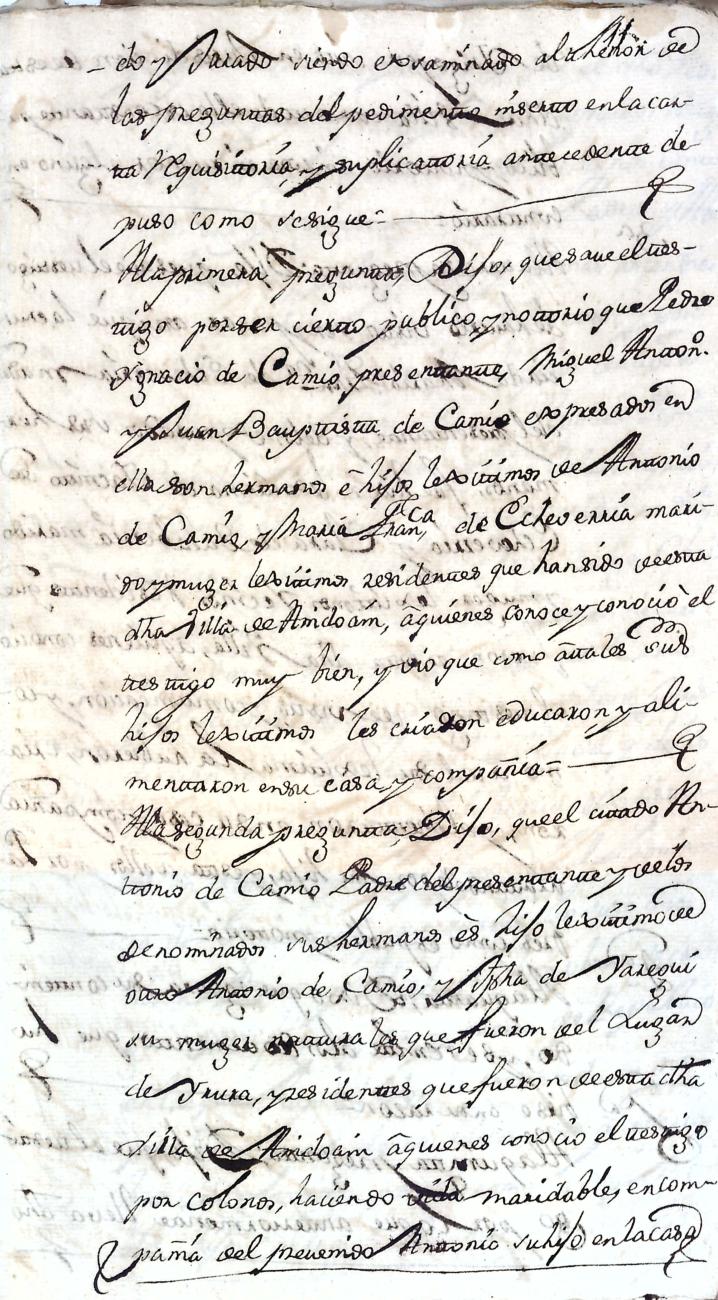 do y Jurado siendo exsaminado al thenor de
las preguntas del pedimento inserto en la car-
ta Requisitoria, y suplicatoria antecedente de
puso como sesigue=
A la primera pregunta, Dijo, que save el tes-
tigo por ser cierto publico, y nottorio que Pedro
Ygnacio de Camio presentante, Miguel Anton.º
y Juan Bauptista de Camio expresados en
ella son hermanos é hijos lexitimos de Antonio
de Camio, y Maria Fran.ca de Echeverria mari-
do y muger lexitimos residentes que han sido de esta
dha Villa de Andoain, a quienes conoce y conoció el
testigo muy bien, y vio que como a tales sus
hijos lexitimos les criaron educaron y ali-
mentaron en su casa, y compañia=
A la segunda pregunta, Dijo, que el citado An-
tonio de Camio Padre del presentante y de los
denominados sus hermanos es hijo lexitimo de
otro Antonio de Camio, y Jpha de Yaregui
su muger naturales que fueron del Lugar
de Yrura, y residentes que fueron de esta dha
Villa de Andoain a quienes conocio el testigo
por colonos, haciendo vida maridable, en com-
pañia del prevenido Antonio su hijo en la casa